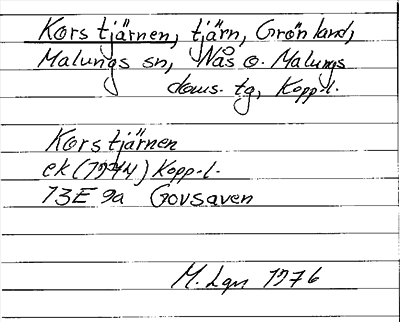 Korstjärnen, tjärn, Grönland,
Malungs sn, Nås o. Malungs
doms. tg, Kopp.l.
Korstjärnen
ek (1974) Kopp.l.
13E 9a Govsaven
M. Lgn 1976